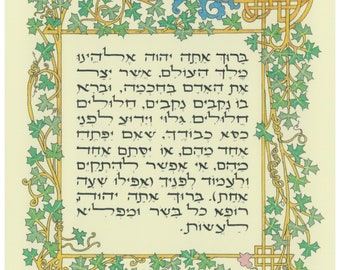 ברוך אתה יהוה אלהינו
מלך העולם, אשר יצר
את האדם בחכמה, וברא
בו נקבים נקבים, חלולים
חלולים גלוי וידוע לפני
כסא כבודך, שאם יפתח
אחד מהם, או יסתם אחד
מהם, אי אפשר להתקים
ולעמוד לפניך (אפילו שעה
אחת). ברוך אתה יהוה,
רופא כל בשר ומפליא
לעשות.